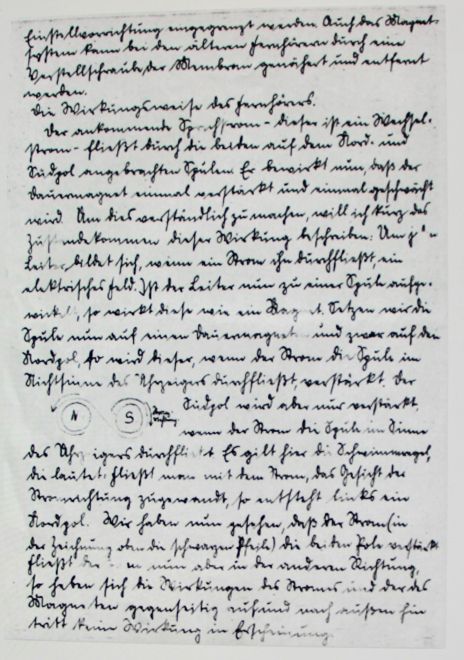 Einstellvorrichtung eingegrenzt werden. Auch das Magnet-
system kann bei den ältern Fernhörern durch eine
Verstellschraube der Membran genähert und entfernt
werden.
Die Wirkungsweise des Fernhörers.
Der ankommende Sprechstrom - dieser ist ein Wechsel-
strom - fließt durch die beiden auf dem Nord- und
Südpol angebrachten Spulen. Er bewirkt nun, daß der
Dauermagnet einmal verstärkt und einmal geschwächt
wird. Um dies verständlich zu machen, will ich kurz das
Zustandekommen dieser Wirkung beschreiben: Um
Leiter bildet sich, wenn ein Strom ihn durchfließt, ein
elektrisches Feld. Ist der Leiter nun zu einer Spule aufge-
wickelt, so wirkt diese wie ein Magnet. Setzen wir die
Spule nun auf einen Dauermagneten und zwar auf den
Nordpol, so wird dieser, wenn der Strom die Spule im
Richtsinne des Uhrzeigers durchfließt, verstärkt. Der
N S
Südpol wird aber nur verstärkt,
wenn der Strom die Spule im Sinne
des Uhrzeigers durchfließt. Es gilt hier die Schwimmregel,
die lautet: Fließt man mit dem Strom, das Gesicht der
Stromrichtung zugewandt, so entsteht links ein
Nordpol. Wir haben nun gesehen, daß der Strom (in
der Zeichnung oben die schwarzen Pfeile) die beiden Pole verstärkt.
Fließt der nun aber in der anderen Richtung,
so heben sich die Wirkungen des Stromes und der des
Magneten gegenseitig auf und nach außen hin
tritt keine Wirkung in Erscheinung.